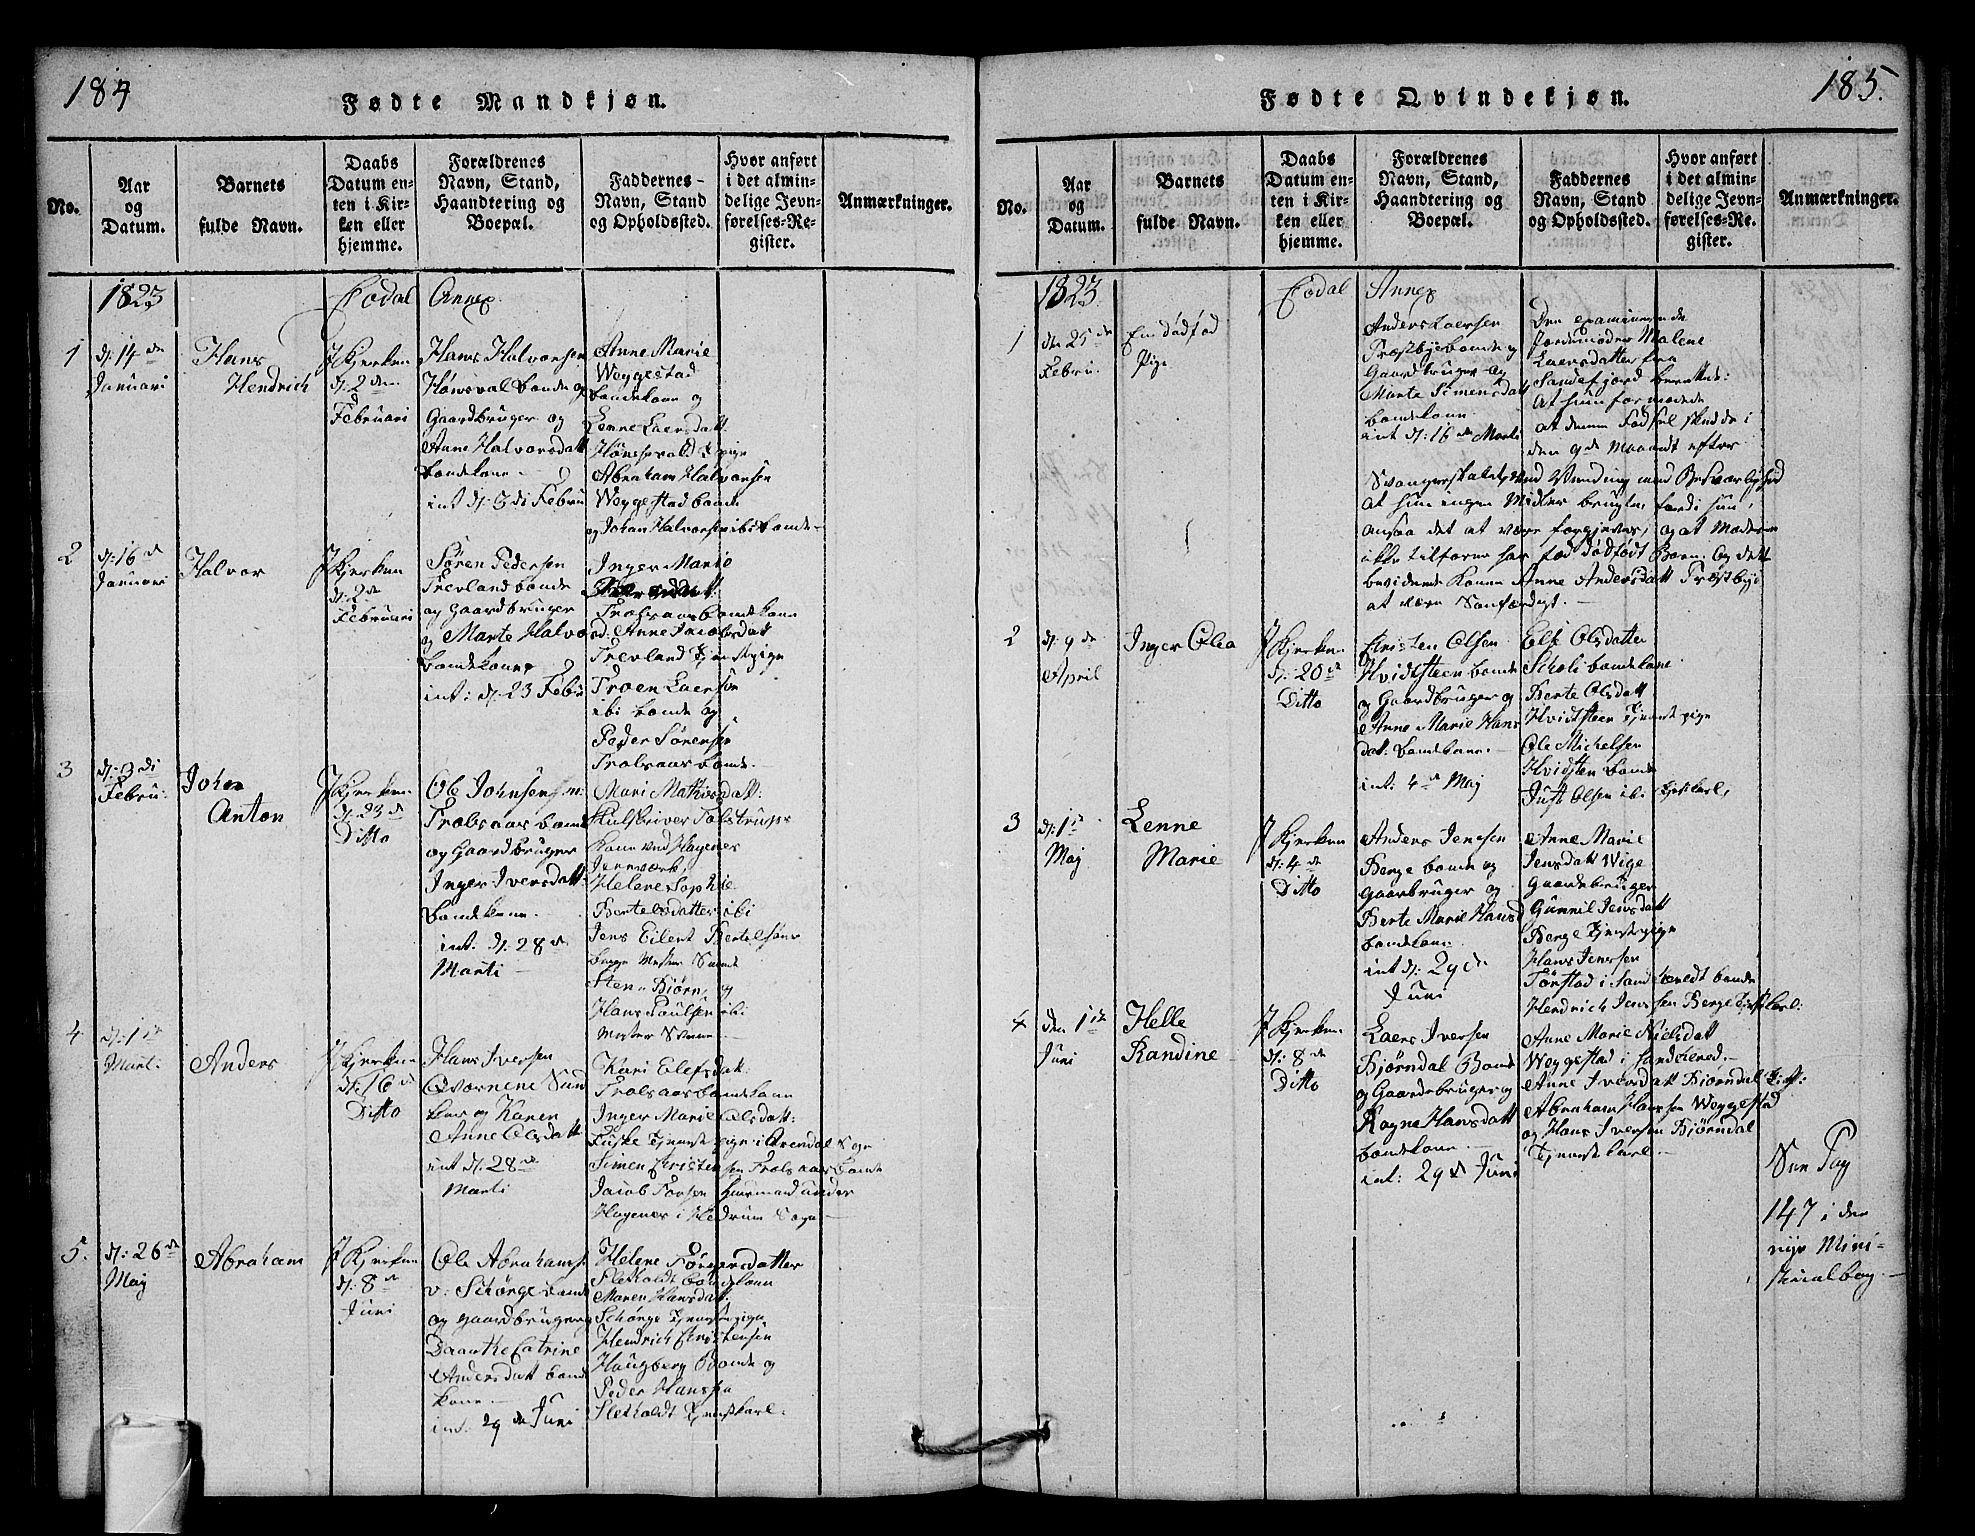 184
Fødte Mandkjøn.
No.
Aar
og
Datum.
Barnets
fulde Navn.
Daabs
Datum en-
ten i Kir-
ken eller
hjemme.
Forældrenes
Navn, Stand,
Haandtering og
Boepæl.
Faddernes
Navn, Stand
og Opholdssted.
Hvor anført
i det almin-
delige Jevn-
førelses-Re-
gister.
Anmærkninger.
1823
Codal
Annex
1
d: 14 de
Januari
Hans
Hendrich
I Kjerken
d: 2 den
Februari
Hans Halvorsen
Hønsval bonde og
Gaardbruger og
Anne Halvorsdatt
bondekone
int d: 3 di Febru
Anne Marie
Weggestad
bondekone og
Lenne Laersdatt
Hønsevald pige
Abraham Halvorsen
Weggestad bonde
og Johan Halvorsen ibi bonde
2
d: 16 de
Januari
Halvor
I Kjerken
d: 2 de
Februari
Søren Pedersen
Trevland bonde
og Gaardbruger
og Marte Halvo
bondekone
int: d. 23 Febru
Inger Marie
Trolsaas bondekone
Anne Jacobsdatt
Trevland Tjenstpige
Troen Laersen
ibi bonde og
Peder Sørensen
Trolsaas bonde
3
d: 3 di
Febru:
Johan
Anton
I Kjerken
d. 23 d
Ditto
Ole Johnsen
Trolsaas bonde
og Gaardbruger
Inger Iversdatt
bondekone
int. d. 28 d
Marti
Mari Mathisdatt:
Hulskriver Falstrups
kone ved Hagenes
Jernværk,
Helene Sophie
Bertelsdatter ibi
Jens Eilert Bertelsen
Sten Biørn, og
Hans Poulsen ibi
Mester Svenne
4
d: 1 ste
Marti
Anders
I Kjerken
d: 16 d
Ditto
Hans Iversen
Qværnene
og Karen
Anne Olsdatt
int d: 28 de
Marti
Kari Elefsdat:
Trolsaas bondekone
Inger Marie Olsdatt:
Fuske Tjenestepige i Arendal Sogn
Simen Cristensen Trolsaas bonde
Jacob Torsen Huusmand under
Hagenes i Hedrum Sogn
5.
d: 26 de
Maj
Abraham
I Kjerken
d: 8 de
Juni
Ole Abrahams:
v: Schørge bonde
og gaardbruger og
Catrine
Andersdatt bonde
kone
int: 29 de Juni
Helene Jørgensdatter
Sletholdt bondekone
Maren Hansdatt:
Schørge Tjenstepige
Hendrich Cristensen
Haugberg Bonde og
Peder Hanssen
Sletholdt Tjenstkarl.
185.
Fødte Qvindekjøn.
No.
Aar
og
Datum.
Barnets
fulde Navn.
Daabs
Datum en-
ten i Kir-
ken eller
hjemme.
Forældrenes
Navn, Stand,
Haandtering og
Boepæl.
Faddernes
Navn, Stand
og Opholdssted.
Hvor anført
i det almin-
delige Jevn-
førelses-Re-
gister.
Anmærkninger.
1823
Codal
Annex
1
den 25 de
Febru.
En dødfød
Pige
Anders Laersen
Trøstbye bonde og
Gaardbruger og
Marte Simensdatt
bondekone
int d: 16 de Marti
Den examinerende
Jordemoder Malene
Laersdatter fra
Sandefjord berettet:
At hun formodede
at denne Fødsel skedde i
den 9de Maaned efter
Svangerskabet, ved Vending med Besværlighed
At hun ingen Midler brugte, fordi hun
ansaa det at være forgjeves, og at Moderen
ikke tilforne har fød dødfødt Barn. Og dett
bevidnede Konen Anne Andersdatt Trøstbye
at være Sanfærdigt.
2
d: 9 de
April
Inger Olea
I Kjerken
d: 20 de
Ditto
Cristen Olsen
Hvidtsteen bonde
og Gaardbruger og
Anne Marie Hans
datt: bondekone
int: 4 de Maj
Else Olsdatter
Scholi bondekone
Berte Olsdatt
Hvidtsteen Tjenestpige
Ole Michelsen
Hvidtsten bonde
Just Olsen ibi
3
d: 1 ste
Maj
Lenne
Marie
I Kjerken
d: 4 de
Ditto
Anders Jensen
Berge bonde og
Gaarbruger og
Berte Marie Hansd
bondekone
int d: 29 de
Juni
Anne Marie
Jensdatt Wige
Gaardbruger
Gunnil Jensdatt
Berge Tjenestepige
Hans Jenssen
Torstad i Sandehæredt bonde
Hendrich Jenssen Berge
4
den 1 ste
Juni
Helle
Randine
I Kjerken
d: 8 de
Ditto
Laers Iversen
Bjørndal Bonde
og Gaardebruger og
Ragne Hansdatt
bondekone
int: 29 de Juni
Anne Marie Nielsdatt
Weggestad i Sandehered.
Anne Iversdatt Bjørndal
Abraham Hanssen Weggestad
og Hans Iversen Bjørndal
Tjenestekarl.
See Pag
147 i den
nye Mini-
sterialbog.